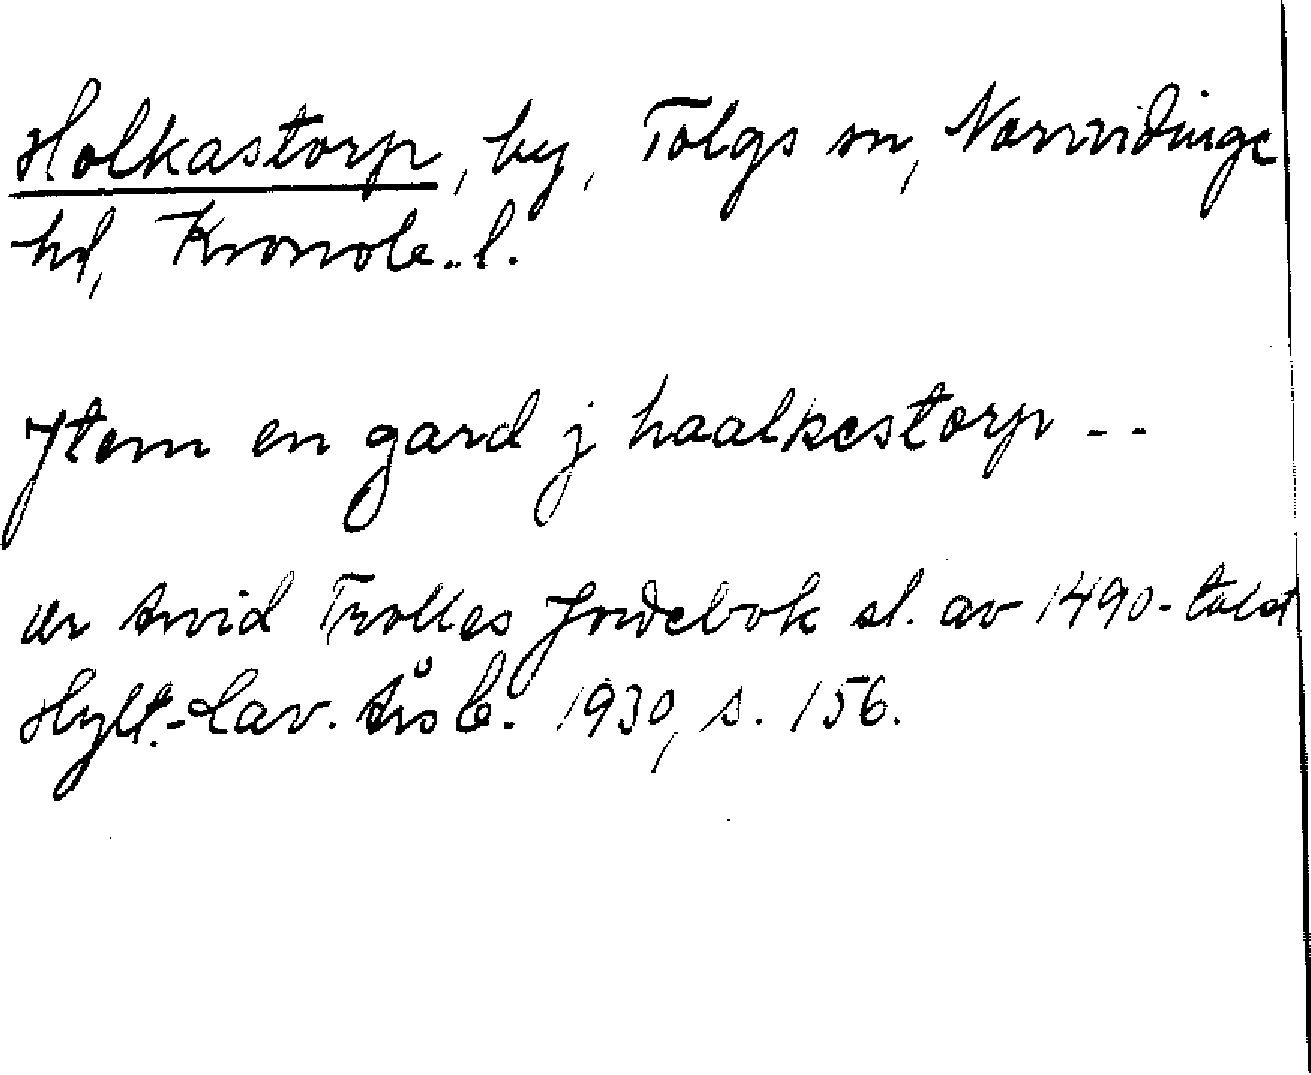 Holkastorp, by, Tolgs sn, Norrvidinge
hd, Kronob. l.
Jtem en gard j haalkestorp - -
ur Arvid Trolles Jordebok sl. av 1490-talet
Hylt.-Cav. Årsb. 1930, s. 156.